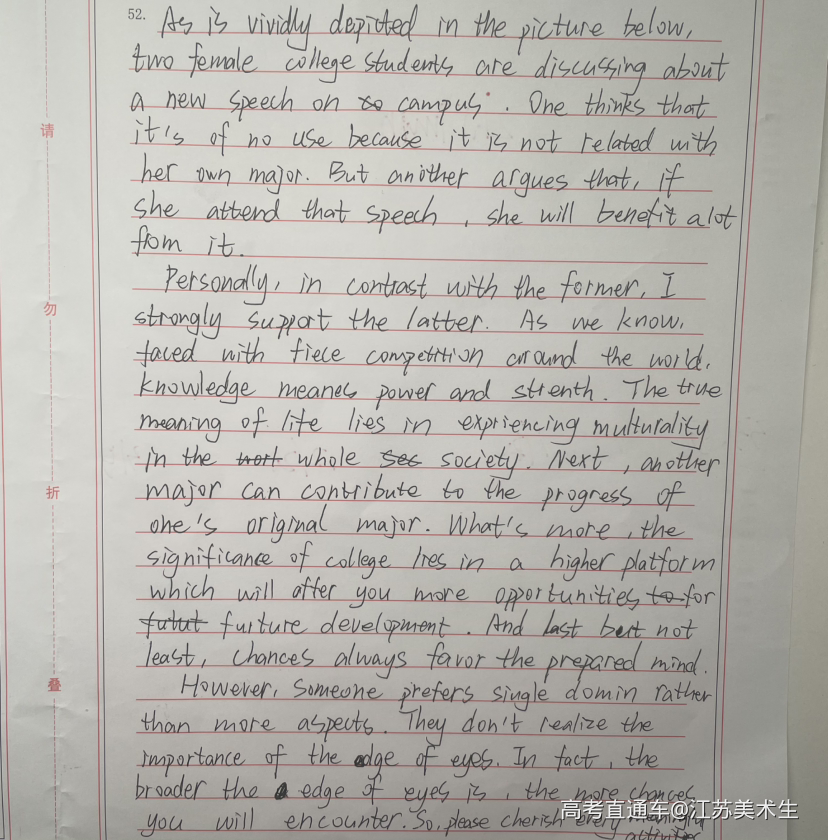 52. As is vividly depicted in the picture below,
two female college students are discussing about
a new speech on to campus. One thinks that
it's of no use because it is not related with
her own major. But another argues that, if
she attend that speech, she will benefit a lot
from it.
Personally, in contrast with the former, I
strongly support the latter. As we know,
faced with fiece competition around the world,
knowledge meanes power and strenth. The true
meaning of life lies in expriencing multurality
in the wort whole sec society. Next, another
major can contribute to the progress of
one's original major. What's more, the
significance of college lies in a higher platform
which will offer you more opportunities to for
futut furture development. And last but not
least, chances always favor the prepared mind.
However, someone prefers single domin rather
than more aspects. They don't realize the
importance of the edge of eyes. In fact, the
broader the edge of eyes is, the more chances
you will encounter. So, please cherish every
请
勿
折
叠
高考直通车@江苏美术生